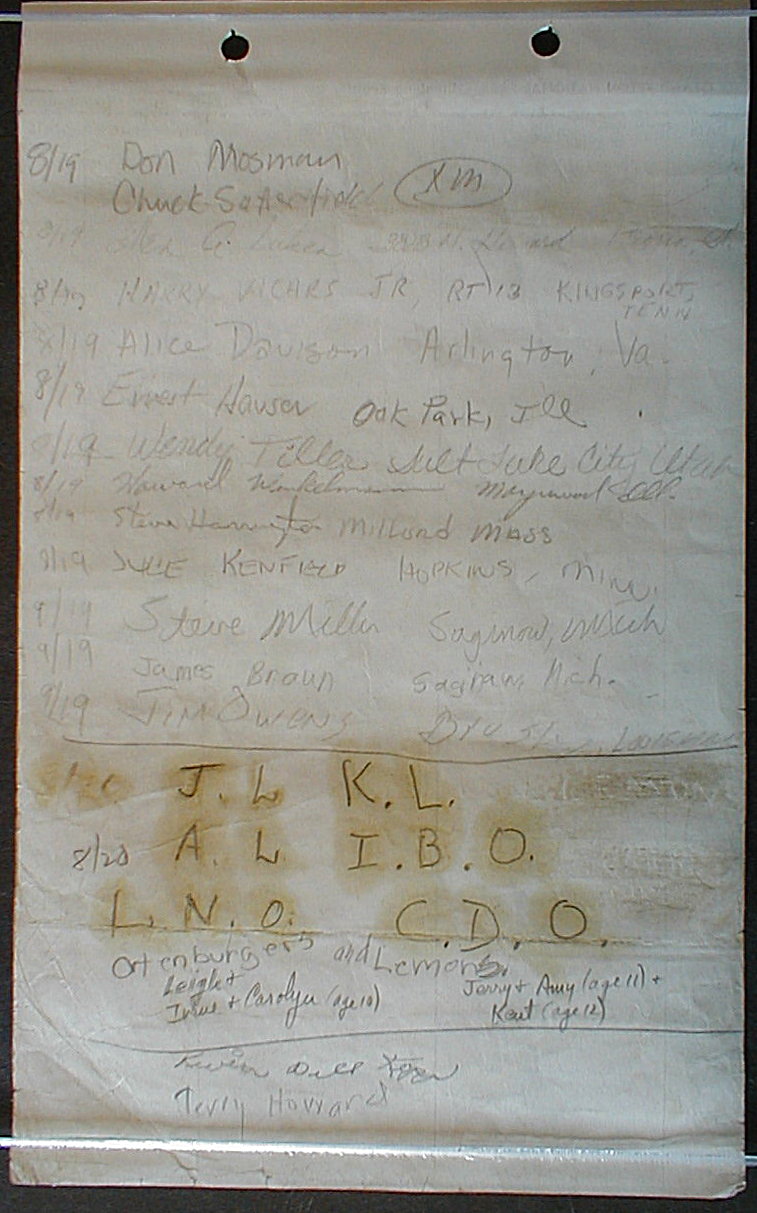 8/19 Don Mosman
Chuck Satterfield XM
8/19
8/19 HARRY VICARS JR, RT 13 KINGSPORT,
TENN
8/19 Alice Davison Arlington, Va.
8/19 Ernest Hauser Oak Park, Ill
8/19 Wendy Teller Salt Lake City Utah
8/19 Howard Winkelmann Maywood Ill.
8/19 Steve Harrington Milford Mass
8/19 JULIE KENFIELD HOPKINS, Minn.
9/19 Steve Miller Saginaw, Mich
9/19 James Braun Saginaw, Mich.
9/19 JIM OWENS
8/20 J. L K. L.
8/20 A. L I. B. O.
L. N. O. C. D. O.
Ortenburgers and Lemons.
Leigh + Jerry + Amy (age 11) +
Irene + Carolyn (age 10) Kent (age 12)
Terry Howard